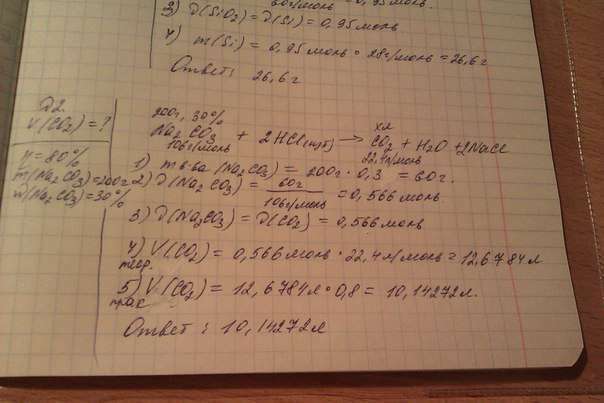 60г/моль = 0,95моль.
3) ν(SiO2) = ν(Si) = 0,95моль
4) m(Si) = 0,95моль · 28г/моль = 26,6г
Ответ: 26,6г
V(CO2) = ?
η = 80%
m(Na2CO3) = 200г
ω(Na2CO3) = 30%
200г, 30% хл
Na2CO3 + 2HCl(изб) → CO2 + H2O + 2NaCl
106г/моль 22,4л/моль
1) m в-ва (Na2CO3) = 200г · 0,3 = 60г.
2) ν(Na2CO3) = 60г / 106г/моль = 0,566моль
3) ν(Na2CO3) = ν(CO2) = 0,566моль
4) V(CO2) = 0,566моль · 22,4л/моль = 12,6784л
теор.
5) V(CO2) = 12,6784л · 0,8 = 10,14272л.
прак
Ответ: 10,14272л